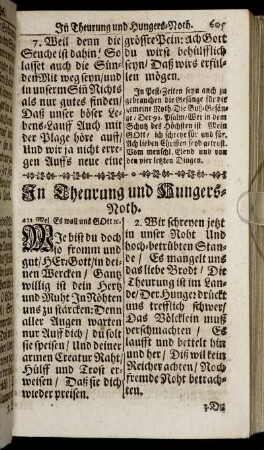 In Theurung und Hungers-Noth. 605
7. Weil denn die
Seuche ist dahin/ So
lasset auch die Sün-
den Mit weg seyn/ und
in unserm Sin Nichts
als nur gutes finden/
Daß unser böser Le-
bens-Lauff Auch mit
der Plage hört auff/
Und wir nicht erre-
gen Auffs neue eine
grössre Pein: Ach Gott
du wirst behülfflich
seyn/ Daß wirs erfül-
len mögen.
In Pest-Zeiten seyn auch zu
gebrauchen die Gesänge für die
gemeine Noth: Die Buß-Gesän-
ge/ Der 91. Psalm/ Wer in dem
Schutz des Höchsten ist Mein
Gott/ ich schreye für und für.
Ach lieben Christen seyd getrost.
Vom menschl. Elend und von
den vier letzten Dingen.
In Theurung und Hungers-
Noth.
Mel Es woll uns GOtt ꝛc.
WIe bist du doch
so fromm und
gut/ HErr Gott/ in dei-
nen Wercken/ Gantz
willig ist dein Hertz
und Muht In Nöhten
uns zu stärcken: Denn
aller Augen warten
nur Auff dich/ du solt
sie speisen/ Und deiner
armen Creatur Raht/
Hülff und Trost er-
weisen/ Daß sie dich
wieder preisen.
2. Wir schreyen jetzt
in unser Noht Und
hoch-betrübten Stan-
de/ Es mangelt uns
das liebe Brodt/ Die
Theurung ist im Lan-
de/ Der Hunger drückt
uns trefflich schwer/
Das Völcklein muß
verschmachten/ Es
laufft und bettelt hin
und her/ Diß wil kein
Reicher achten/ Noch
fremde Noht betrach-
ten.
3. Diß